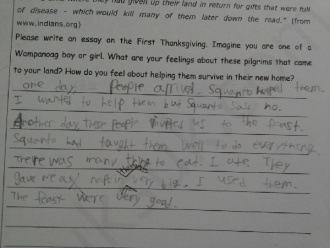 where they had given up their land in return for gifts that were full
of disease – which would kill many of them later down the road." (from
www.indians.org)
Please write an essay on the First Thanksgiving. Imagine you are one of a
Wampanoag boy or girl. What are your feelings about these pilgrims that came
to your land? How do you feel about helping them survive in their new home?
one day people arrived. Squanto helped them.
I wanted to help them but Squanto said no.
Another day these people invited us to the feast.
Squanto had taught them well to do everything.
There was many to eat. I ate. They
gave me very big. I used them.
The feast were very good.